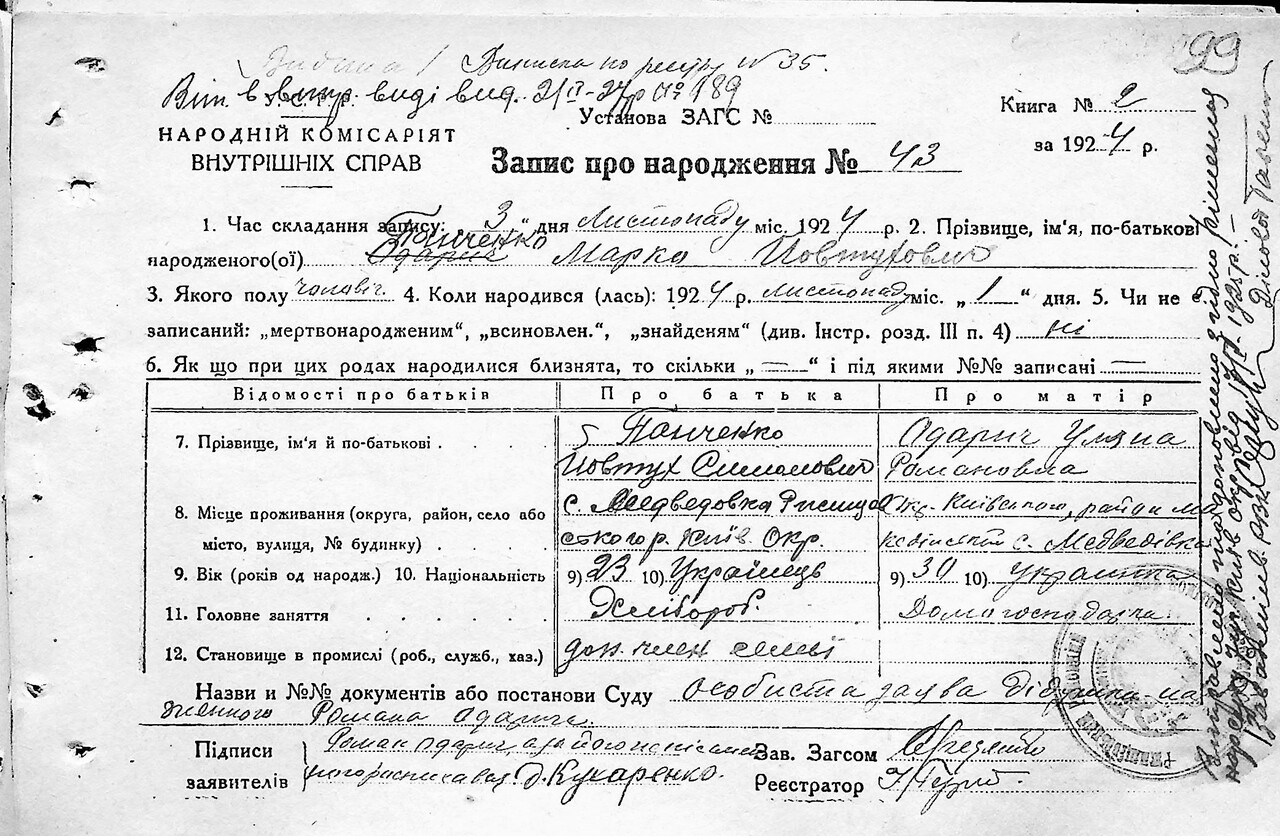 Виписка по реєстру № 35.
99
Вип. в вид. 2/IV-27р № 189
У.С.Р.Р.
НАРОДНІЙ КОМІСАРІЯТ
ВНУТРІШНІХ СПРАВ
Установа ЗАГС №
Книга № 2
за 1924 р.
Запис про народження № 43
1. Час складання запису: „3“ дня Листопаду міс. 1924 р. 2. Прізвище, ім'я, по-батькові
Панченко
народженого(ої) Одарич Марко Йовтухович
3. Якого полу чоловіч. 4. Коли народився (лась): 1924 р. листопаду міс. „1“ дня. 5. Чи не є
записаний: „мертвонародженим“, „всиновлен.“, „знайденям“ (див. Інстр. розд. III п. 4) ні
6. Як що при цих родах народилися близнята, то скільки „=“ і під якими №№ записані =
Відомості про батьків Про батька Про матір
7. Прізвище, ім'я й по-батькові Панченко Одарич Уляна
Йовтух Симонович Романовна
8. Місце проживання (округа, район, село або с. Медведовка Окр. Київського, район
місто, вулиця, № будинку) ського р. Київ. Окр. с. Медведівка
9. Вік (років од народж.) 10. Національність 9) 23 10) Українець 9) 30 10) Українка
11. Головне заняття Хлібороб. Домогосподарка.
12. Становище в промислі (роб., служб., хаз.) доп. член семї
Назви и №№ документів або постанови Суду Особиста заява Діда
Романа Одарича.
Підписи Роман Одарич, а за його неписьмен
заявителів ного расписавсь Д. Кухаренко.
Зав. Загсом
Реєстратор